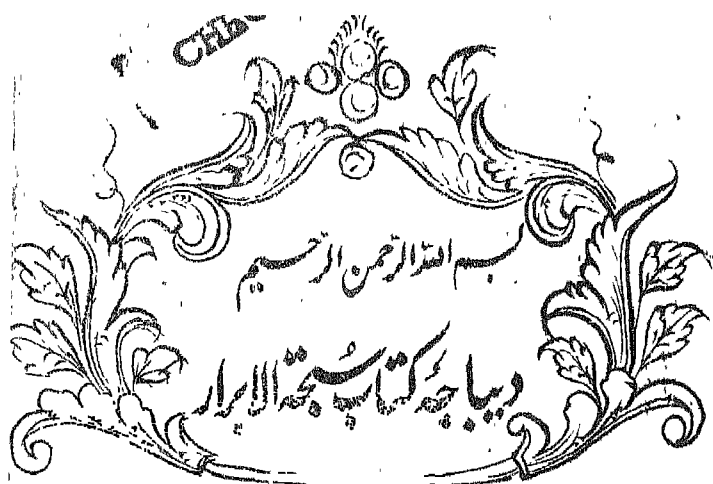 بسم الله الرحمن الرحیم
دیباچۀ کتاب سُبحة الابرار